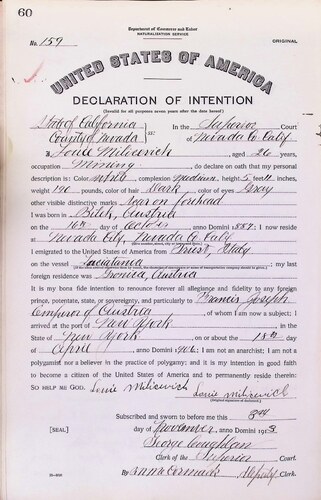 60
Department of Commerce and Labor
NATURALIZATION SERVICE
No. 159
ORIGINAL
UNITED STATES OF AMERICA
DECLARATION OF INTENTION
(Invalid for all purposes seven years after the date hereof)
State of California
County of Nevada } ss: In the Superior Court
of Nevada Co Calif
I, Louie Milicevich, aged 26 years,
occupation Mining, do declare on oath that my personal
description is: Color White, complexion Medium, height 5 feet 11 inches,
weight 190 pounds, color of hair Dark, color of eyes Gray
other visible distinctive marks Scar on forehead
I was born in Bilek, Austria
on the 10th day of October, anno Domini 1887; I now reside
at Nevada City, Nevada Co Calif
I emigrated to the United States of America from Triest, Italy
on the vessel; my last
foreign residence was, Austria
It is my bona fide intention to renounce forever all allegiance and fidelity to any foreign
prince, potentate, state, or sovereignty, and particularly to Francis Joseph
Emperor of Austria, of whom I am now a subject; I
arrived at the port of New York, in the
State of New York, on or about the 18th day
of April, anno Domini 1906; I am not an anarchist; I am not a
polygamist nor a believer in the practice of polygamy; and it is my intention in good faith
to become a citizen of the United States of America and to permanently reside therein:
SO HELP ME GOD. Louie Milicevich
Louie Milicevich
(Original signature of declarant)
Subscribed and sworn to before me this 3rd
[SEAL] day of November, anno Domini 1913
George Coughlan
Clerk of the Superior Court.
By McCormack, Deputy Clerk.